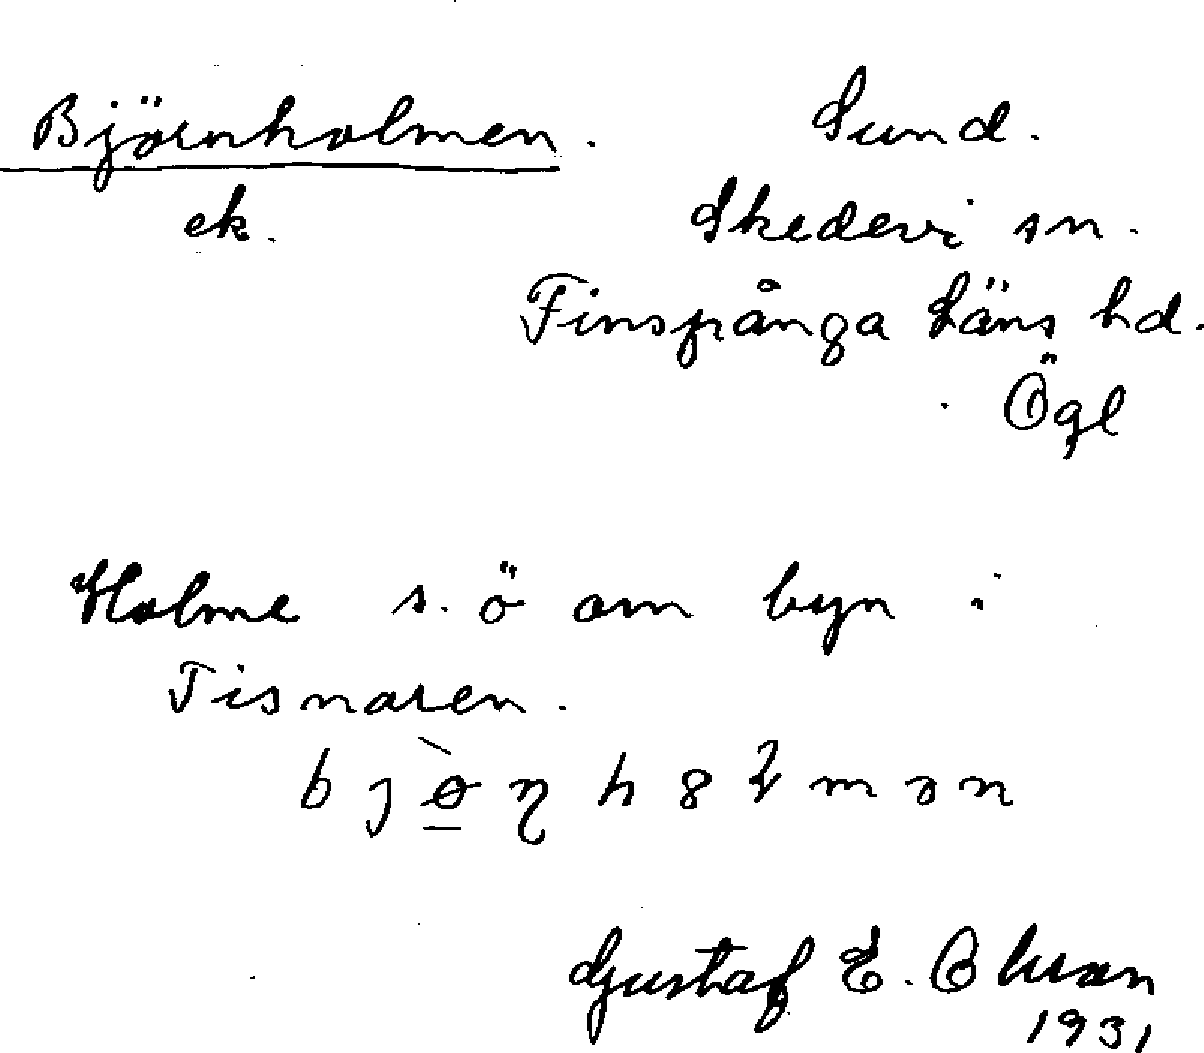 Björnholmen. Sund.
ek. Skedevi sn.
Finspånga Läns hd.
Ögl
Holme s. ö om byn i
Tisnaren.
Gustaf E. Olsson
1931